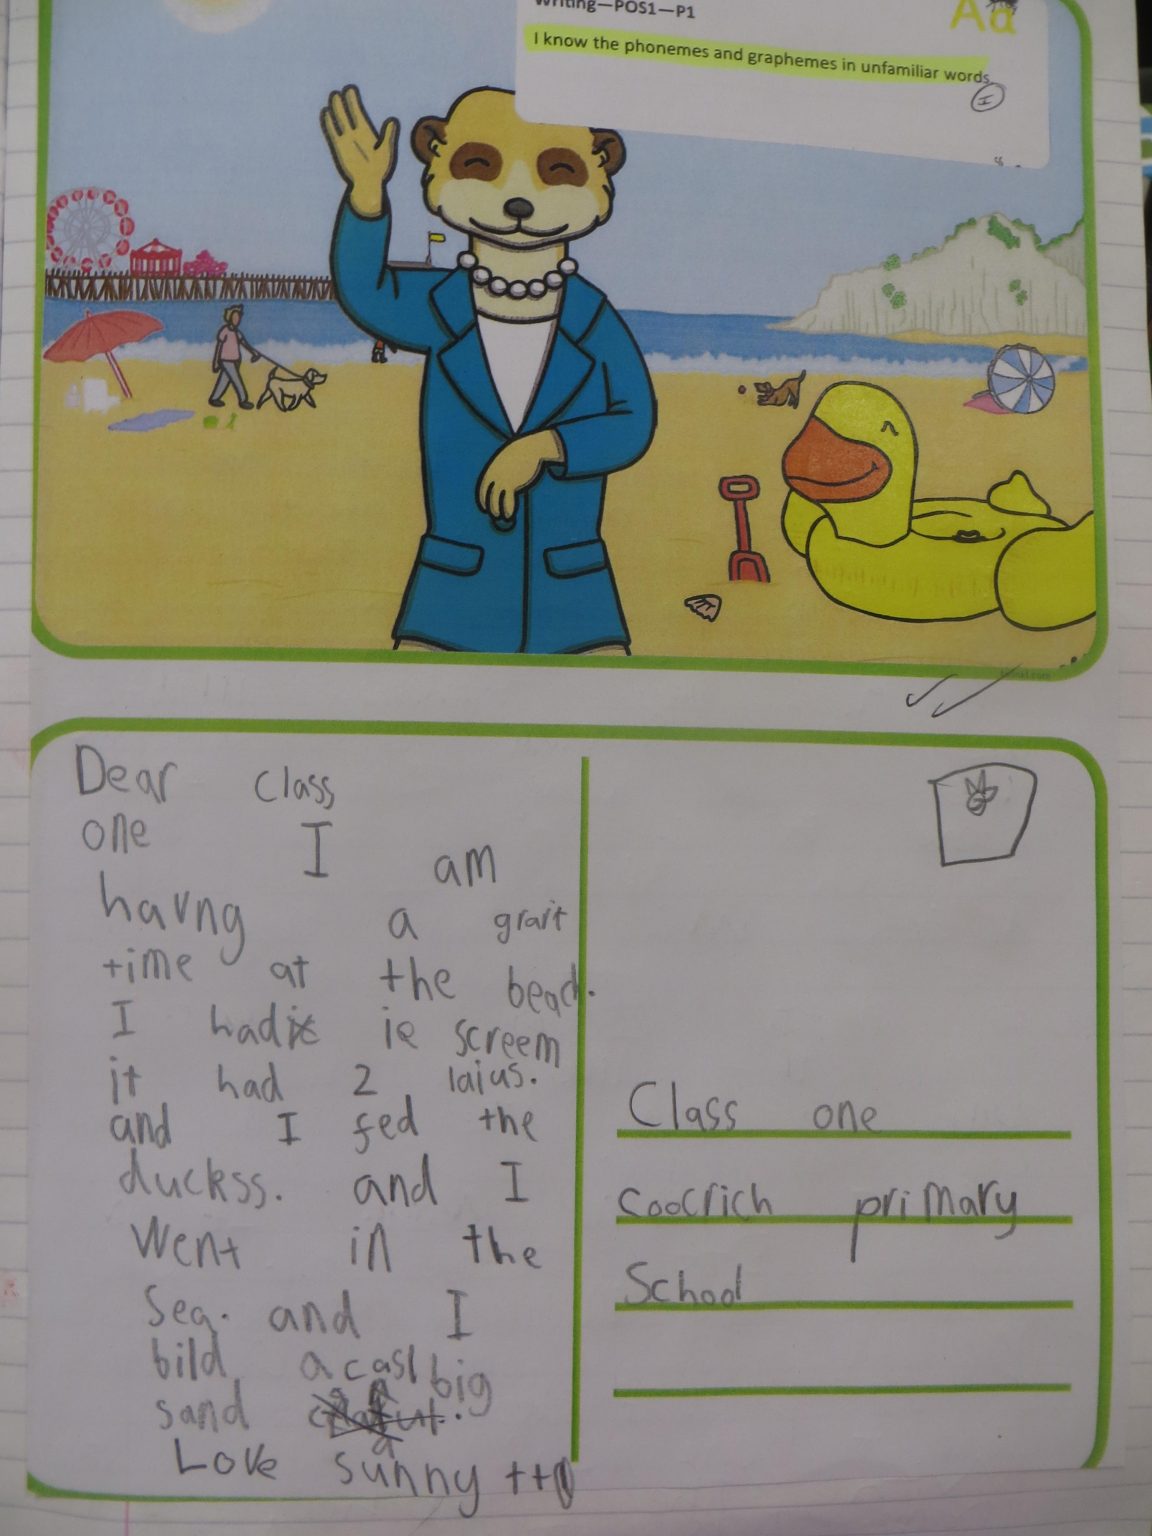 Writing—POS1—P1
Aa
I know the phonemes and graphemes in unfamiliar words.
I
Dear class
one I am
havng a grait
time at the beach.
I had ie screem
it had 2 laius.
and I fed the
duckss. and I
Went in the
Sea. and I
bild a casl big
sand
Love sunny
Class one
coocrich primary
School